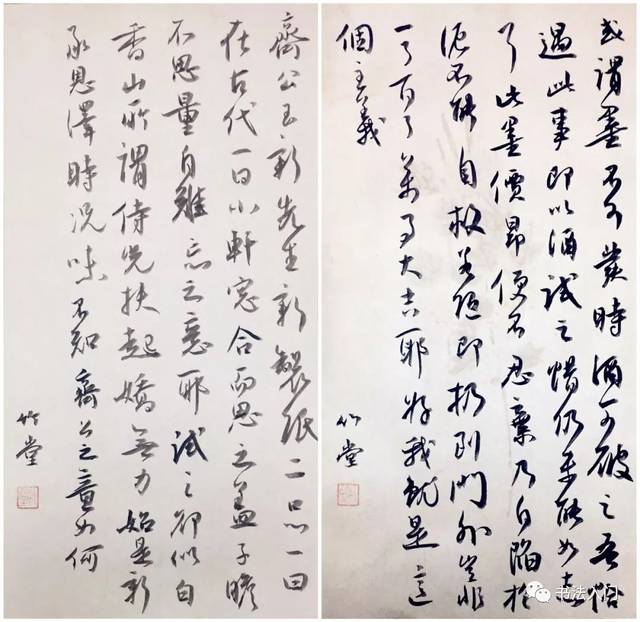 齋公玉新先生新製紙二品一曰
在古代一曰小軒窓合而思之蓋子瞻
不思量自難忘之意耶試之卻似白
香山所謂侍兒扶起嬌無力始是新
承恩澤時況味不知齋公之意如何
竹堂
或謂墨不可發時酒可破之吾恰
遇此事即以酒試之惜仍未能如意
了此墨價昂便不忍棄乃自陷於
泥不能自拔若随即扔到門外豈非
一了百了萬事大吉耶好我就是這
個主義
竹堂
书法入门